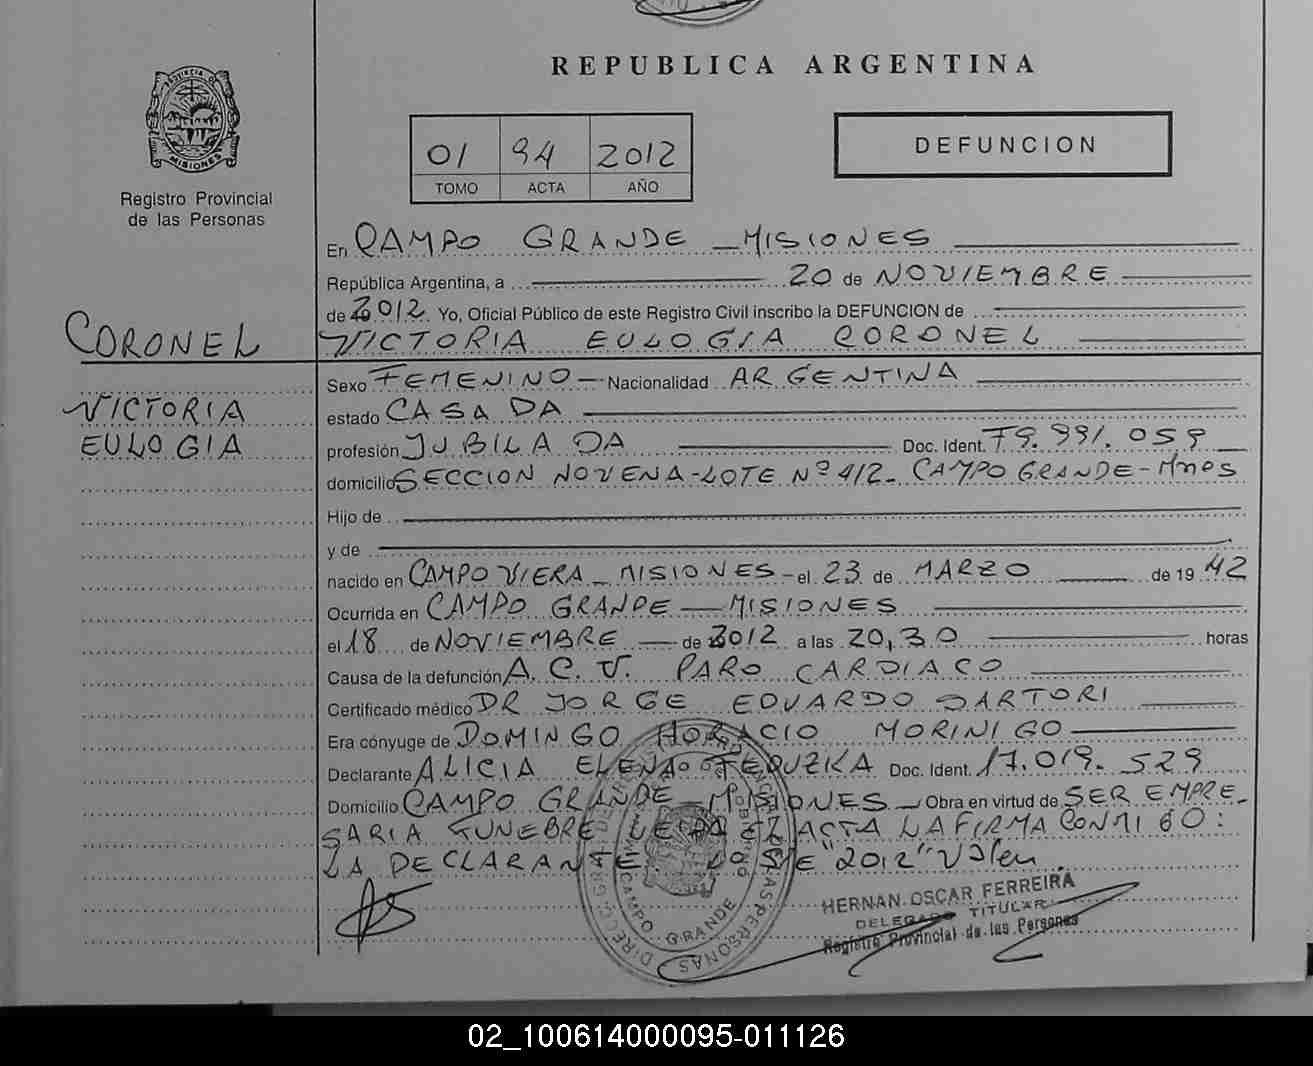 PROVINCIA DE
MISIONES
Registro Provincial
de las Personas
REPUBLICA ARGENTINA
01 94 2012
TOMO ACTA AÑO
DEFUNCION
En CAMPO GRANDE - MISIONES
República Argentina, a 20 de NOVIEMBRE
de 2012. Yo, Oficial Público de este Registro Civil inscribo la DEFUNCION de
CORONEL VICTORIA EULOGIA CORONEL
Sexo FEMENINO - Nacionalidad ARGENTINA
VICTORIA estado CASADA
EULOGIA profesión JUBILADA Doc. Ident. F9.991.059
domicilio SECCION NOVENA - LOTE Nº 412 - CAMPO GRANDE - Mnes
Hijo de
y de
nacido en CAMPO VIERA - MISIONES - el 23 de MARZO de 19 42
Ocurrida en CAMPO GRANDE - MISIONES
el 18 de NOVIEMBRE de 2012 a las 20,30 horas
Causa de la defunción A.C.V. PARO CARDIACO
Certificado médico DR JORGE EDUARDO SARTORI
Era cónyuge de DOMINGO HORACIO MORINIGO
Declarante ALICIA ELENA Doc. Ident. 17.019.529
Domicilio CAMPO GRANDE - MISIONES - Obra en virtud de SER EMPRE-
SARIA FUNEBRE LEIDA EL ACTA LA FIRMA CONMIGO:
LA DECLARANTE "2012" Valen
HERNAN OSCAR FERREIRA
DELEGADO TITULAR
Registro Provincial de las Personas
CAMPO GRANDE
02_100614000095-011126